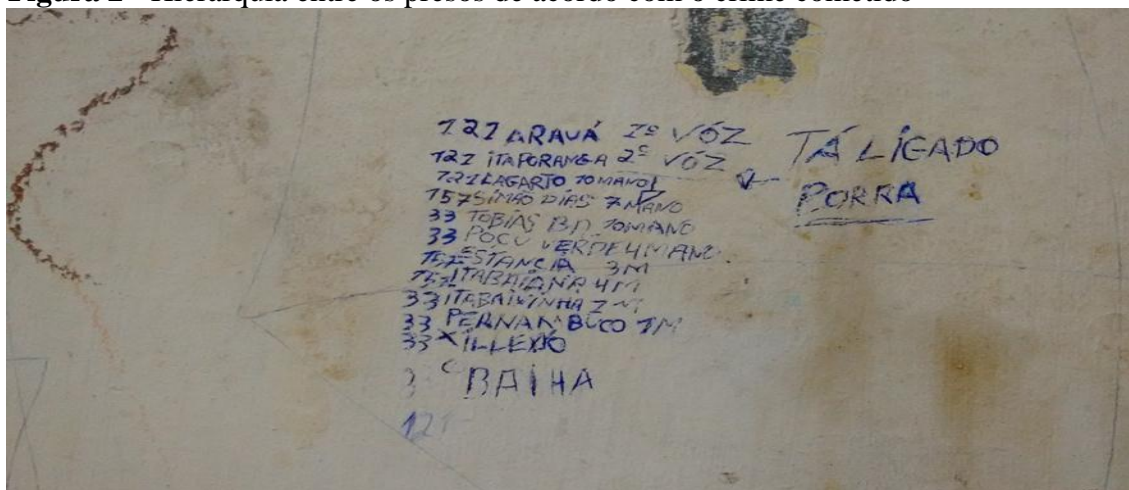 Figura 2 - Hierarquia entre os presos de acordo com o crime cometido
121 ARAUÁ 1º VÓZ
121 ITAPORANGA 2º VÓZ
121 LAGARTO 10 MANO
157 SIMÃO DIAS 7 MANO
33 TOBIAS 10 MANO
33 POCU VERDE 4 MANO
157 ESTANCIA 3M
157 ITABAIANA 4M
33 ITABAIXINHA
33 PERNAMBUCO 1M
33
BAIHA
121
TÁ LIGADO
PORRA